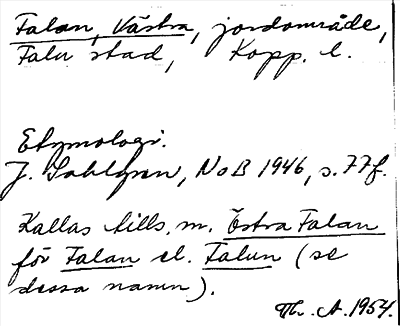 Falan, Västra, jordområde,
Falu stad, Kopp. l.
Etymologi.
J. Sahlgren, NoB 1946, s. 77f.
Kallas tills. m. Östra Falan
för Falan el. Falun (se
dessa namn).
Th. A. 1954.